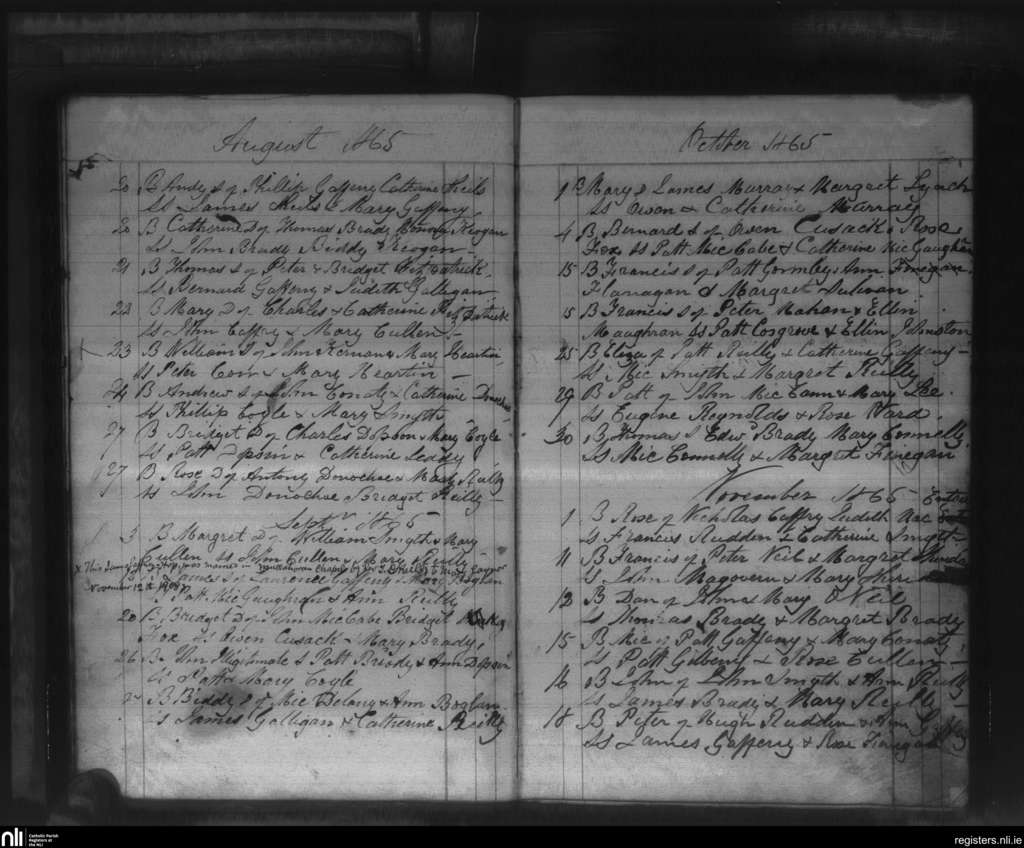 August 1865
20 B Judy D of Phillip Gaffeny Catherine Sheils
Ss James Sheils & Mary Gaffeny
20 B Catherine D of Thomas Brady Honora Keogan
Ss John Brady Biddy Keogan
21 B Thomas S of Peter & Bridget Fitzpatrick
Ss Bernard Gaffeny & Judith Galligan
22 B Mary D of Charles & Catherine Fitzpatrick
Ss John Caffry & Mary Cullen
23 B William S of John Kernan & Mary Heartin
Ss Peter & Mary Heartin
24 B Andrew S of John Conaty & Catharine Donohoe
Ss Phillip Coyle & Mary Smyth
27 B Bridget D of Charles Dopson Mary Coyle
Ss Patt Dopson & Catherine Leddy
27 B Rose D of Antony Donochoe & Mary Reilly
Ss John Donochoe Bridget Reilly
Sept 1865
3 B Margret D of William Smyth & Mary
Cullen Ss John Cullen & Mary Reilly
x This James Gaffney was married in
November 12th 1908
James S of Laurence Gaffeny & Mary Boylan
Patt McGaughran & Ann Reilly
20 B Bridget D of John McCabe Bridget
Fox Ss Owen Cusack & Mary Brady
26 B John Illigitimate S Patt Briody & Ann Dopson
Ss Patt & Mary Coyle
B Biddy D of Mic Delany & Ann Boylan
Ss James Galligan & Catherine Reilly
October 1865
1 B Mary D James Murray & Margret Lynch
Ss Owen & Catherine Murray
4 B Bernard S of Owen Cusack & Rose
Fox Ss Patt Mic Cabe & Catherine Mc Gaughran
15 B Francis S of Patt Gormley & Ann Finegan
Flanagan & Margret Sulivan
15 B Francis S of Peter Mahon & Ellen
Maughran Ss Patt Cosgrove & Ellin Johnston
25 B Eliza of Patt Reilly & Catherine Gaffeny
Ss Mic Smyth & Margret Reilly
29 B Patt of John Mic Cann & Mary Lee
Ss Eugene Reynolds & Rose Ward
30 B Thomas S Edwd Brady Mary Connelly
Ss Mic Connelly & Margret Finegan
November 1865
1 B Rose of Nicholas Caffry Judith Mac
Ss Francis Rudden & Catherine Smyth
11 B Francis of Peter Neil & Margret
Ss John Magovern & Mary
12 B Dan of John & Mary O Neil
Ss Thomas Brady & Margret Brady
15 B Mic of Patt Gaffany & Mary Conaty
Ss Patt Gilberry & Rose Cullen
16 B John of John Smyth & Ann Reilly
Ss James Brady & Mary Reilly
18 B Peter of Hugh Rudden & Ann
Ss James Gafferry & Rose Finegan
nli
Catholic Parish
Registers at
the NLI
registers.nli.ie